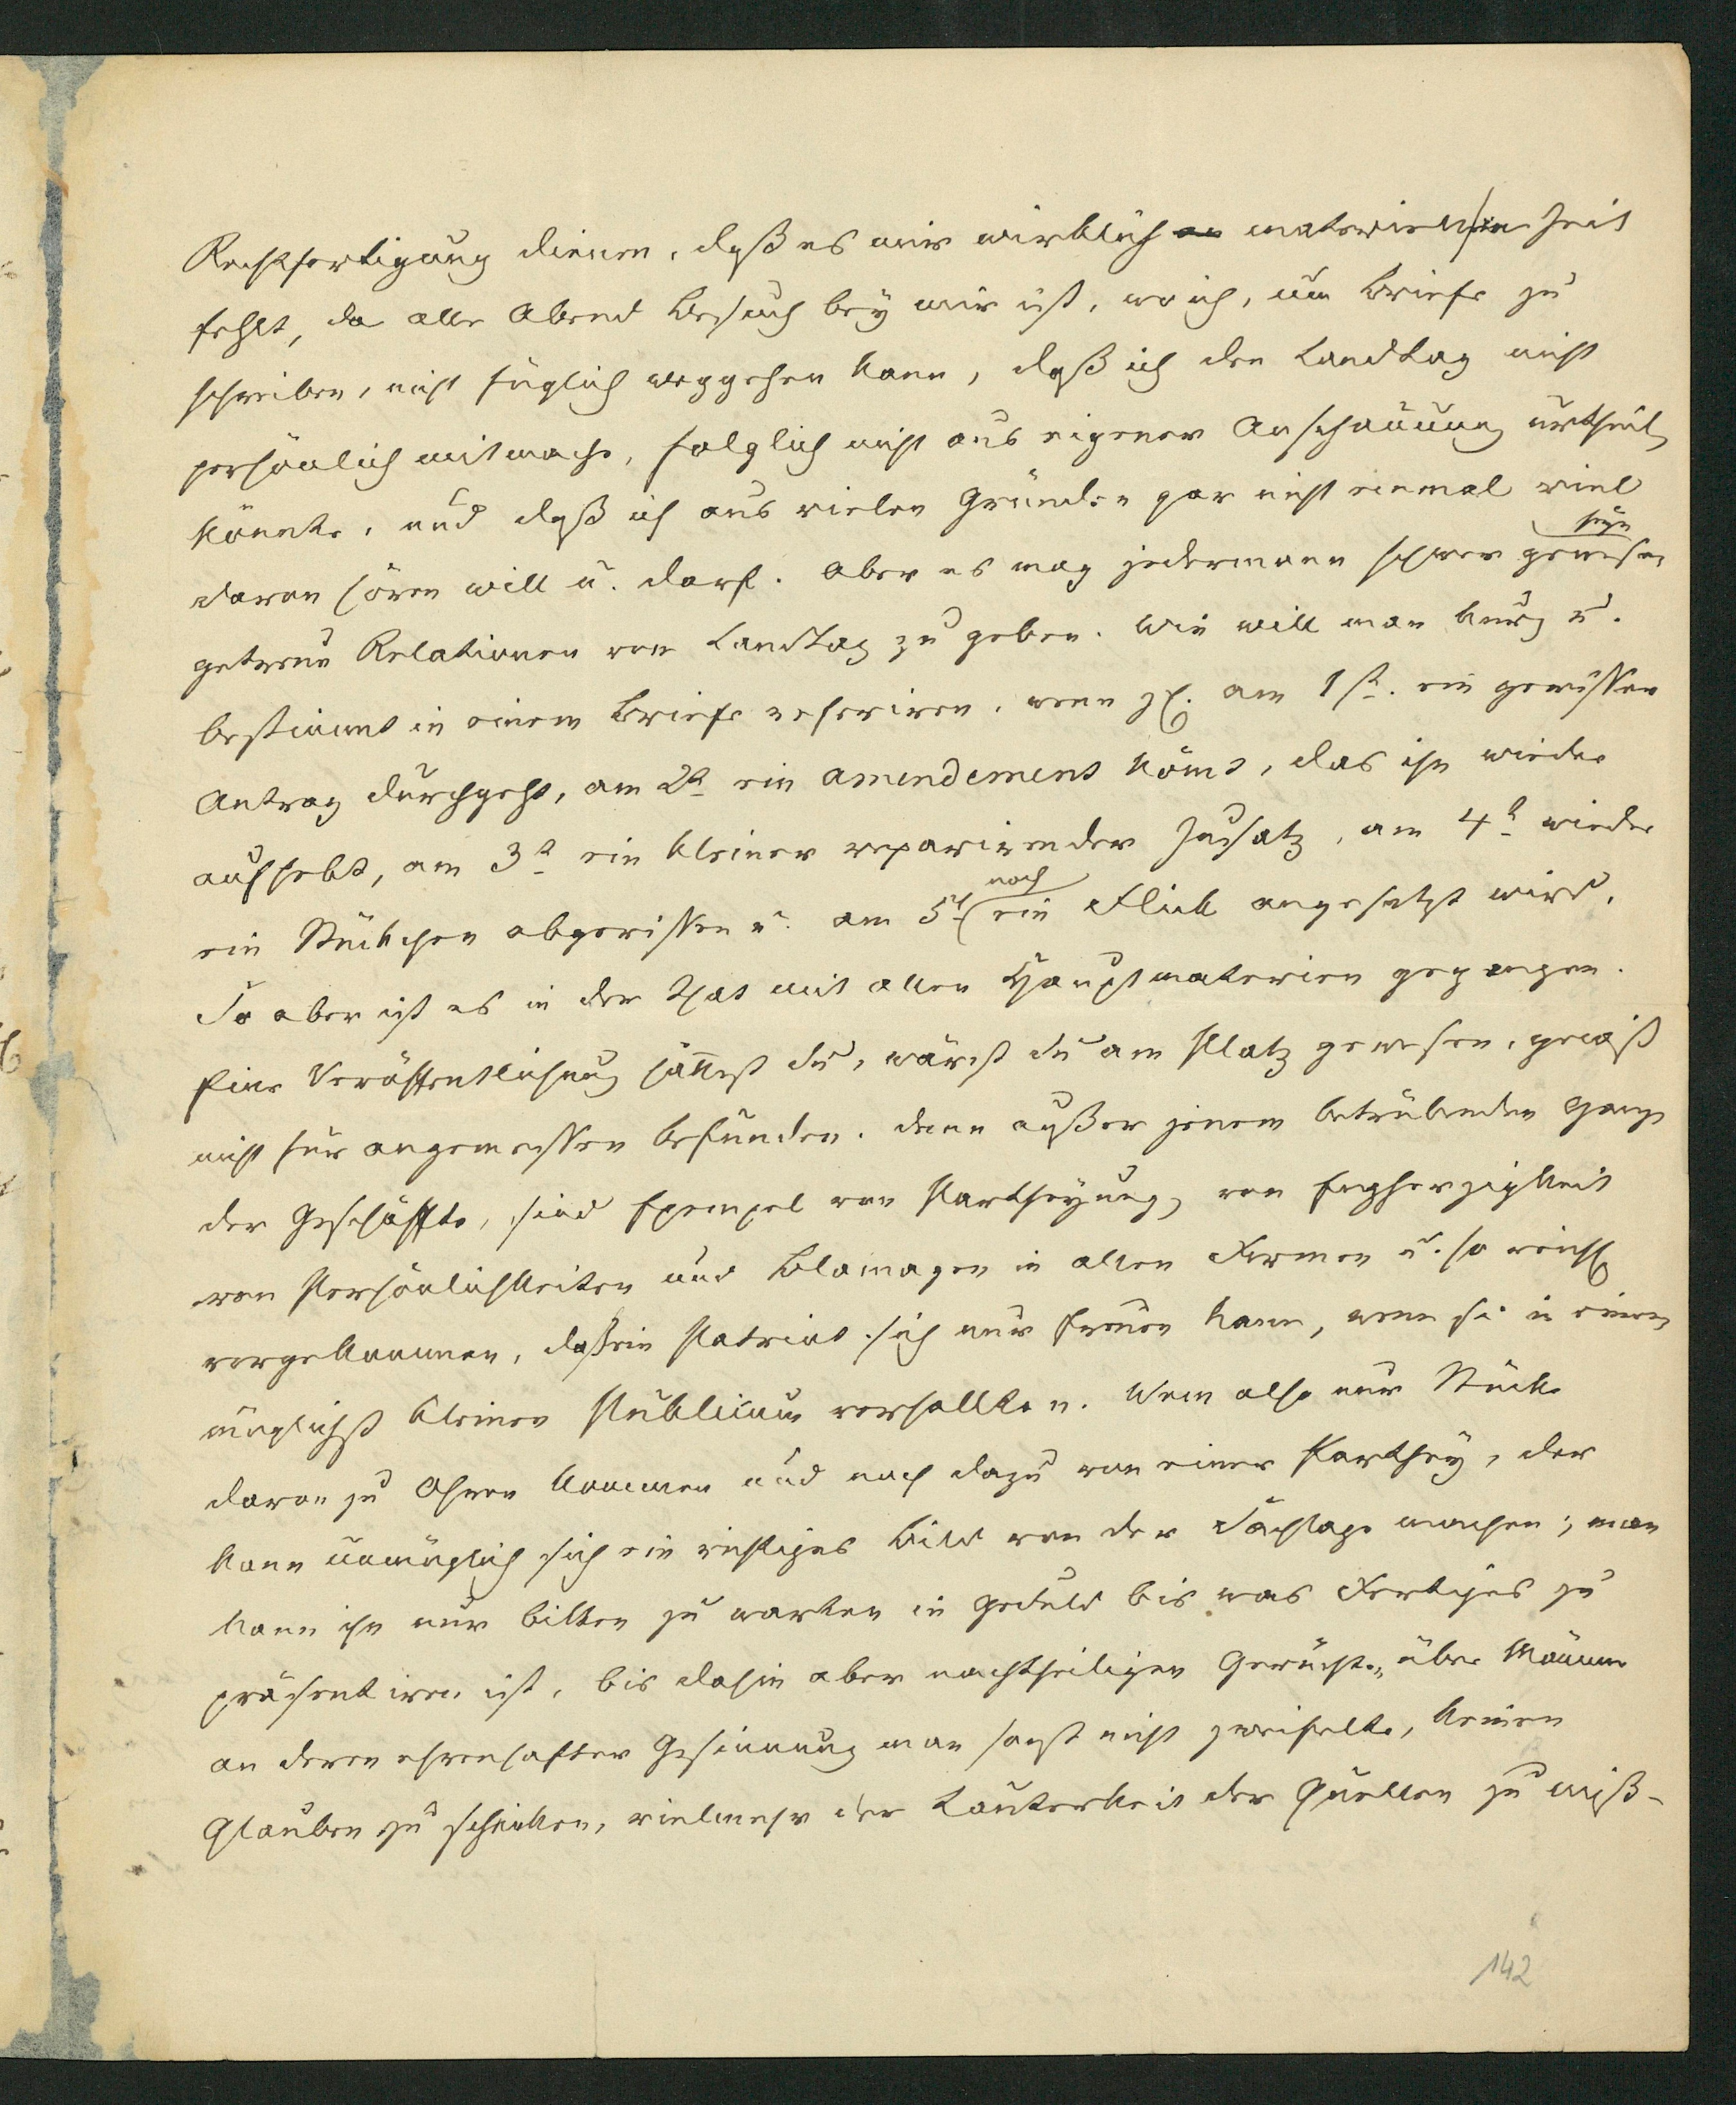 Rechtfertigung dienen, daß es mir wirklich an materieller Zeit
fehlt, da alle Abend Besuch bey mir ist, wo ich, um Briefe zu
schreiben, nicht füglich weggehen kann, daß ich den Landtag nicht
persönlich mitmache, folglich nicht aus eigener Anschauung urtheilen
könnte, und daß ich aus vielen Gründen gar nicht einmal viel
seyn
davon hören will u. darf. Aber es mag jedermann schwer gewesen
getreue Relationen vom Landtag zu geben. Wie will man kurz u.
bestimmt in einem Briefe referiren, wenn zE. am 1st. ein gewisser
Antrag durchgeht, am 2t ein amendement kömt, das ihn wieder
aufhebt, am 3t ein kleiner reparirender Zusatz, am 4t wieder
noch
ein Stückchen abgerissen u. am 5t ein Flick angesetzt wird.
So aber ist es in der That mit allen Hauptmaterien gegangen.
Eine Veröffentlichung hättest du, wärest du am Platz gewesen, gewiß
nicht für angemessen befunden. Denn außer jenem betrübenden Gange
der Geschäffte, sind Exempel von Partheyung, von Engherzigkeit
von Persönlichkeiten und Blamagen in allen Formen u. so reichl
vorgekommen, daß ein Patriot sich nur freuen kann, wenn sie in einem
möglichst kleinen Publicum verhallten. Wem also nur Stücke
davon zu Ohren kommen und noch dazu von einer Parthey, der
kann unmöglich sich ein richtiges Bild von der Sachlage machen; man
kann ihn nur bitten zu warten in Geduld bis was Fertiges zu
präsentiren ist, bis dahin aber nachtheiligen Gerüchten über Männer
an deren ehrenhafter Gesinnung man sonst nicht zweifelte, keinen
Glauben zu schenken, vielmehr der Lauterkeit der Quellen zu miß-
142